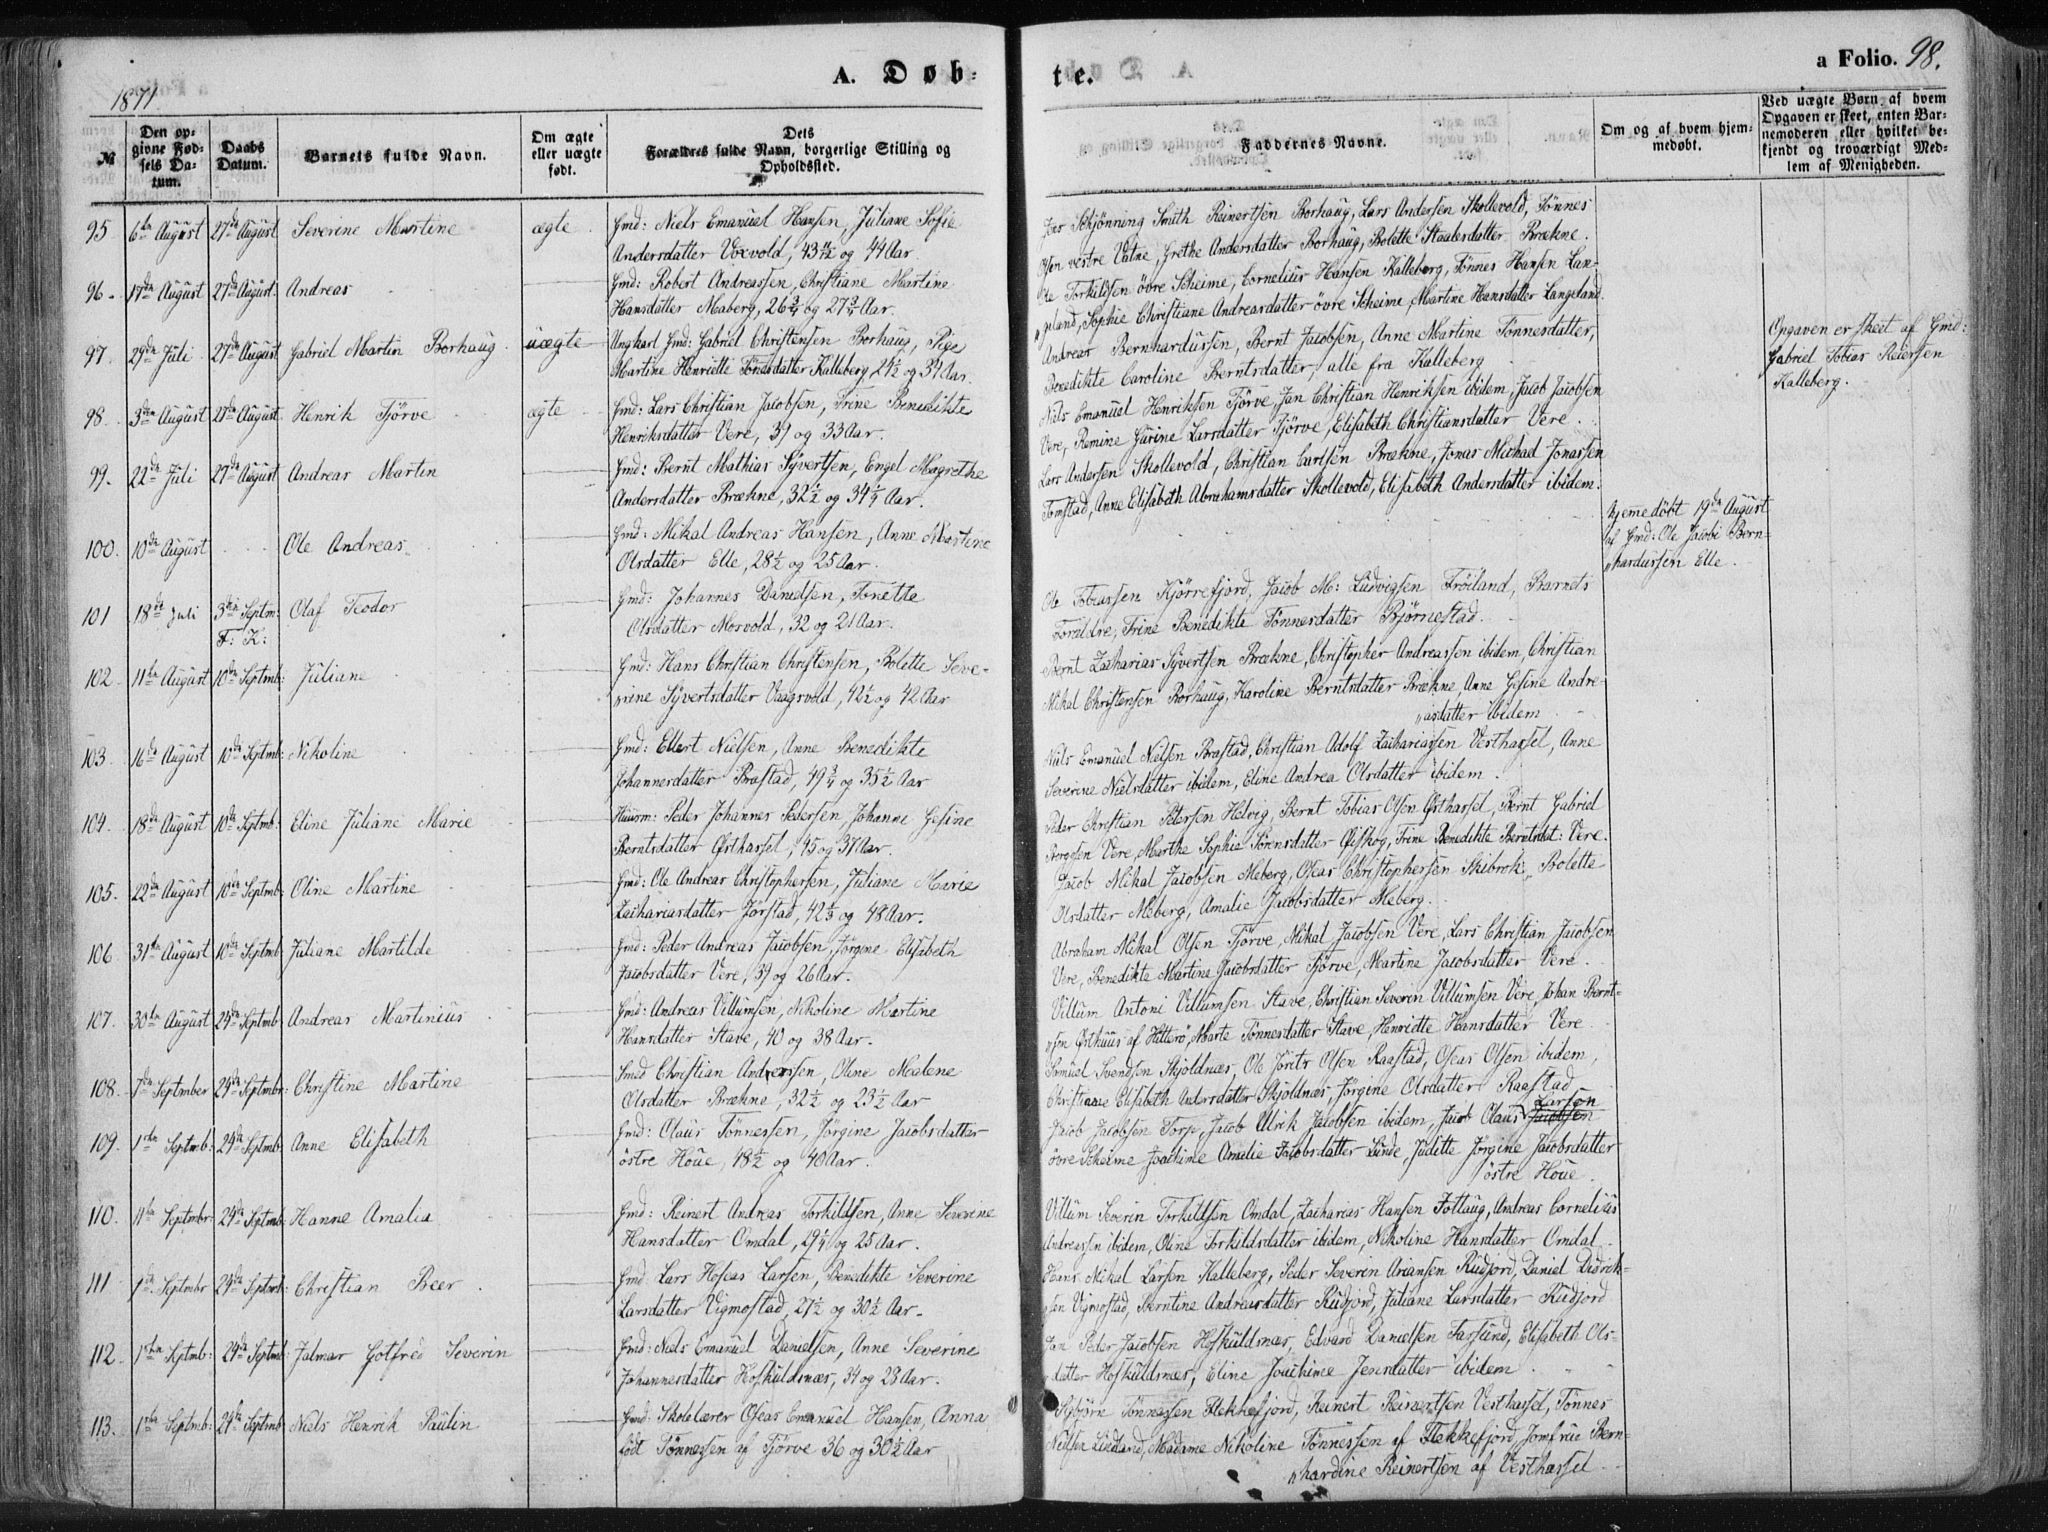 A. Døb=
te.
a Folio. 98.
1871.
№
Den opgivne Fødsels Datum.
Daabs Datum.
Barnets fulde Navn.
Om ægte eller uægte født.
Dets Forældres fulde Navn, borgerlige Stilling og Opholdssted.
Faddernes Navne.
Om og af hvem hjemmedøbt.
Ved uægte Børn af hvem Opgaven er skeet, enten Barnemoderen eller hvilket bekjendt og troværdigt Medlem af Menigheden.
95 6te August 27de August Severine Martine ægte Gmd: Niels Emanuel Hansen, Juliane Sofie
Andersdatter 43 og 44 Aar.
Jens Schjønning Smith Reinertsen Borhaug, Lars Andersen Skollevold, Tönnes
Olsen vestre Vatne, Grethe Andersdatter Borhaug, Bolette Staalesdatter Brækne.
96 17de August 27de August Andreas Gmd: Robert Andreassen, Christiane Martine
Hansdatter Maberg, 26 3/4 og 27 3/4 Aar.
Ole Torkildsen övre Scheime, Cornelius Hansen Kalleberg, Tönnes Hansen Lan-
geland, Sophie Christiane Andreasdatter övre Scheime, Martine Hansdatter Langeland.
97. 29de Juli 27de August Gabriel Martin Borhaug uægte Ungkarl Gmd: Gabriel Christensen Borhaug, Pige
Martine Henriette Tönesdatter Kalleberg, 24 1/2 og 39 Aar.
Andreas Bernhardussen, Bernt Jacobsen, Anne Martine Tönnesdatter,
Benedikte Caroline Berntsdatter, alle fra Kalleberg
Opgaven er skeet af Gmd:
Gabriel Tobias Reiersen
Kalleberg.
98. 3die August 27de August Henrik Tjörve ægte Gmd: Lars Christian Jacobsen, Trine Benedikte
Henriksdatter Vere, 39 og 33 Aar.
Niels Emanuel Henriksen Tjörve, Jan Christian Henriksen ibidem, Jacob Jacobsen
Vere, Remine Gurine Larsdatter Tjörve, Elisabeth Christiansdatter Vere.
99. 22de Juli 27de August Andreas Martin Gmd: Bernt Mathias Syvertsen, Engel Magrethe
Andersdatter Brækne, 32 1/2 og 34 1/4 Aar.
Lars Andersen Skollevold, Christian Carlsen Brækne, Jonas Michael Jonassen
Tomstad, Anne Elisabeth Abrahamsdatter Skollevold, Elisabeth Andersdatter ibidem.
100. 10de August Ole Andreas Gmd: Mikal Andreas Hansen, Anne Martine
Olsdatter Elle, 28 1/2 og 25 Aar.
hjemedöbt 19de August
af Gmd: Ole Jacobi Bern-
hardussen Elle.
101 18de Juli 3die Septm: F: K: Olaf Teodor Gmd: Johannes Danielsen, Tonette
Olsdatter Morvold, 32 og 21 Aar.
Ole Tobiassen Kjörrefjord, Jacob M: Ludvigsen Fröiland, Barnets
Forældre, Trine Benedikte Tönnesdatter Björnestad.
102. 11te August 10de Septmb: Juliane Gmd: Hans Christian Christensen, Bolette Seve-
rine Syvertsdatter Vaagsvold, 42 1/2 og 42 Aar
Bernt Zacharias Syvertsen Brækne, Christopher Andreassen ibidem, Christian
Mikal Christensen Borhaug, Karoline Berntsdatter Brækne, Anne Gesine Andre-
asdatter ibidem
103. 16de August 10de Septmb: Nikoline Gmd: Ellert Nielsen, Anne Benedikte
Johannesdatter Brastad, 49 3/4 og 35 1/2 Aar
Niels Emanuel Nielsen Brastad, Christian Adolf Zachariassen Vesthassel, Anne
Severine Nielsdatter ibidem, Eline Andrea Olsdatter ibidem.
104. 18de August 10de Septmb: Eline Juliane Marie Huusm: Peder Johannes Pedersen, Johanne Gesine
Berntsdatter Østhassel, 45 og 37 Aar.
Peder Christian Petersen Helvig, Bernt Tobias Olsen Østhassel, Bernt Gabriel
Bergesen Vere, Marthe Sophie Tönnesdatter Øiskog, Trine Benedikte Berntsdat: Vere.
105. 22de August 10de Septmb: Oline Martine Gmd: Ole Andreas Christophersen, Juliane Marie
Zachariasdatter Jørstad, 42 og 48 Aar.
Jacob Mikal Jacobsen Meberg, Oseas Christophersen Skibrok, Bolette
Olsdatter Meberg, Amalie Jacobsdatter Meberg.
106 31te August 10de Septmb: Juliane Martilde Gmd: Peder Andreas Jacobsen, Jörgine Elisabeth
Jacobsdatter Vere, 39 og 26 Aar.
Abraham Mikal Olsen Tjörve, Mikal Jacobsen Vere, Lars Christian Jacobsen
Vere, Benedikte Martine Jacobsdatter Tjörve, Martine Jacobsdatter Vere.
107. 30te August 24de Septmb: Andreas Martinius Gmd: Andreas Villumsen, Nikoline Martine
Hansdatter Stave, 40 og 38 Aar.
Villum Antoni Villumsen Stave, Christian Severin Villumsen Vere, Johan Bernt-
sen Østhuus af Hitterö, Marte Tönnesdatter Stave, Henriette Hansdatter Vere
108. 7de Septmber 24de Septmbr: Christine Martine Smed Christian Andersen, Oline Malene
Olsdatter Brækne, 32 1/2 og 23 1/2 Aar
Samuel Svendsen Skjoldnæs, Ole Jörits Olsen Raastad, Oseas Olsen ibidem,
Christiane Elisabeth Andersdatter Skjoldnæs, Jörgine Olsdatter Raastad
109. 1ste Septmb: 24de Septmb: Anne Elisabeth Gmd: Olaus Tönnessen, Jörgine Jacobsdatter
östre Houe, 48 1/2 og 40 Aar.
Jacob Jacobsen Torp, Jacob Ulrik Jacobsen ibidem, Jacob Olaus Jacobsen Larsen
övre Scheime Joachime Amalie Jacobsdatter Lunde, Juditte Jörgine Jacobsdatter
östre Houe.
110. 11te Septmbr: 24de Septmb: Hanne Amalia Gmd: Reinert Andreas Torkildsen, Anne Severine
Hansdatter Omdal, 29 1/4 og 25 Aar.
Villum Severin Torkildsen Omdal, Zacharias Hansen Tottaug, Andreas Cornelius
Andreassen ibidem, Oline Torkildsdatter ibidem, Nikoline Hansdatter Omdal.
111 1ste Septmbr 24de Septmb: Christian Beer Gmd Lars Hoseas Larsen, Benedikte Severine
Larsdatter Vigmostad, 27 1/2 og 30 1/2 Aar.
Hans Mikal Larsen Kalleberg, Peder Severin Ariansen Rudjord, Daniel Didrik-
sen Vigmostad, Berntine Andreasdatter Rudjord, Juliane Larsdatter Rudjord
112. 1ste Septmb: 24de Septmb: Jalmar Gotfred Severin Gmd: Niels Emanuel Danielsen, Anne Severine
Johannesdatter Hoskuldsnæs, 34 og 28 Aar.
Jan Peder Jacobsen Hoskuldsnæs, Edvard Danielsen Farsund, Elisabeth Ols-
datter Hoskuldsnæs, Eline Joachime Jensdatter ibidem.
113. 1ste Septmb: 24de Septmb: Niels Henrik Paulin Gmd: Skolelærer Oseas Emanuel Hansen, Anna
födt Tönnessen af Tjörve 36 og 30 1/2 Aar
Asbjörn Tönnessen Flekkefjord, Reinert Reinertsen Vesthassel, Tönnes
Nielsen Lundland, Madame Nikoline Tönnessen af Flekkefjord, Jomfrue Bern-
hardine Reinertsen af Vesthassel